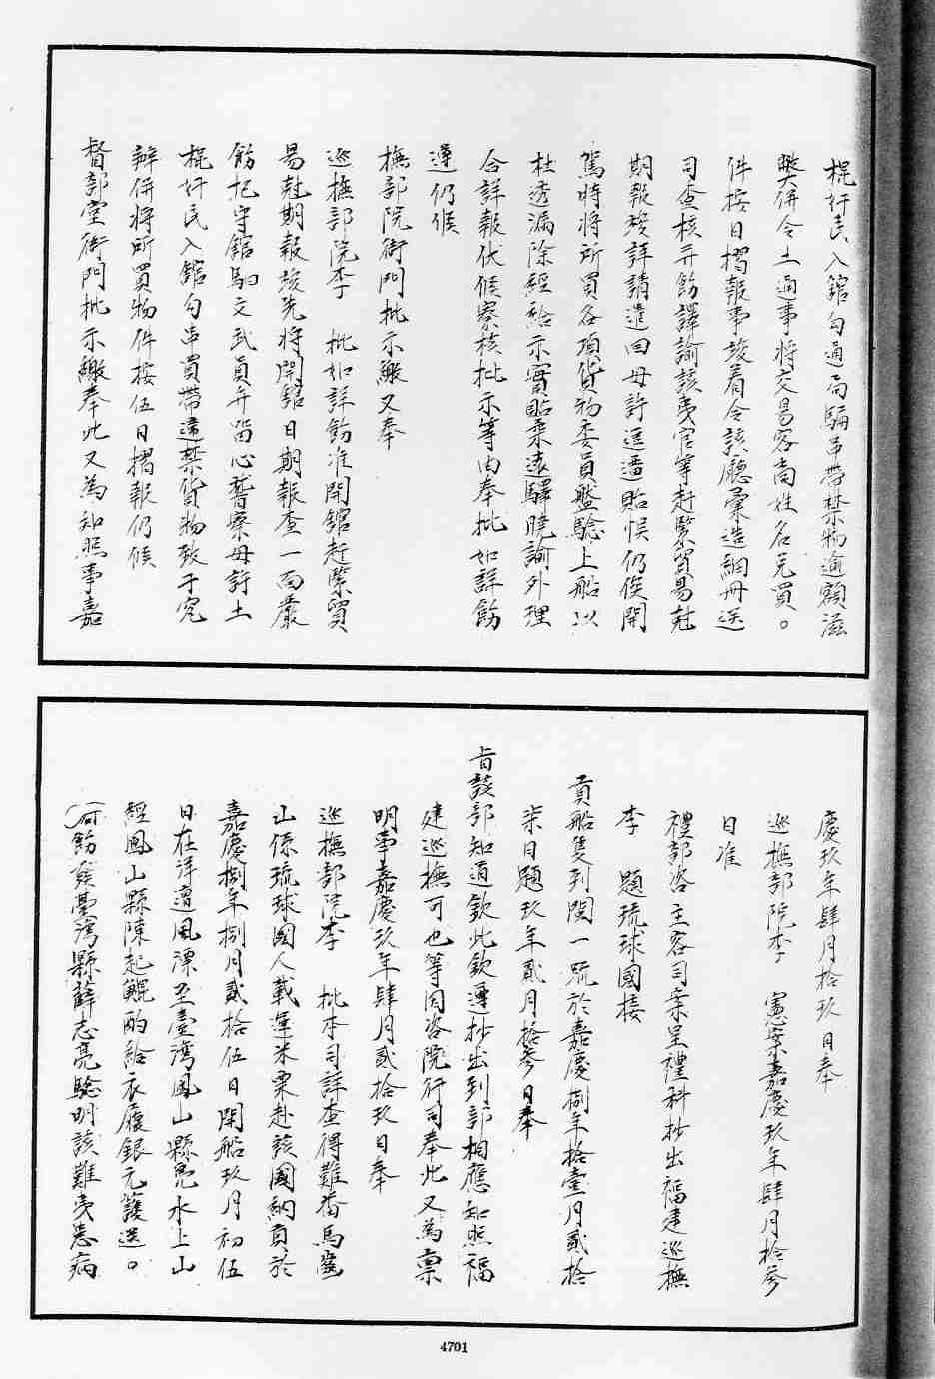 棍奸民入館勾通局騙串帶禁物逾額滋
弊併令土通事將交易客商姓名兑買。
件按日摺報事竣着令該廳彙造細冊送
司查核并飭譯諭該夷官等赶緊貿易尅
期報竣詳請遣回毋許逗遛貽悞仍俟開
駕時將所買各項貨物委員盤驗上船以
杜透漏除經給示實貼柔遠驛曉諭外理
合詳報伏候察核批示等由奉批如詳飭
遵仍候
撫部院衙門批示繳又奉
巡撫部院李　批如詳飭准開館赶緊貿
易尅期報竣先將開館日期報查一面嚴
飭把守館馹文武員弁留心嚴察毋許土
棍奸民入館勾串買帶違禁貨物致于究
辦併將所買物件按伍日摺報仍候
督部堂衙門批示繳奉此又為知照事嘉
慶玖年肆月拾玖日奉
巡撫部院李　憲案嘉慶玖年肆月拾叅
日准
禮部咨主客司案呈禮科抄出福建巡撫
李　題琉球國接
貢船隻到閩一疏於嘉慶捌年拾壹月貳拾
柒日題玖年貳月拾叅日奉
旨該部知道欽此欽遵抄出到部相應知照福
建巡撫可也等因咨院行司奉此又為稟
明事嘉慶玖年肆月貳拾玖日奉
巡撫部院李　批本司詳查得難番馬
山係琉球國人載運米粟赴該國納貢於
嘉慶捌年捌月貳拾伍日開船玖月初伍
日在洋遭風漂至臺灣鳳山縣　水上山
經鳳山縣陳起鯤酌給衣履銀元護送。
飭發臺灣縣薛志亮驗明該難夷患病
4701